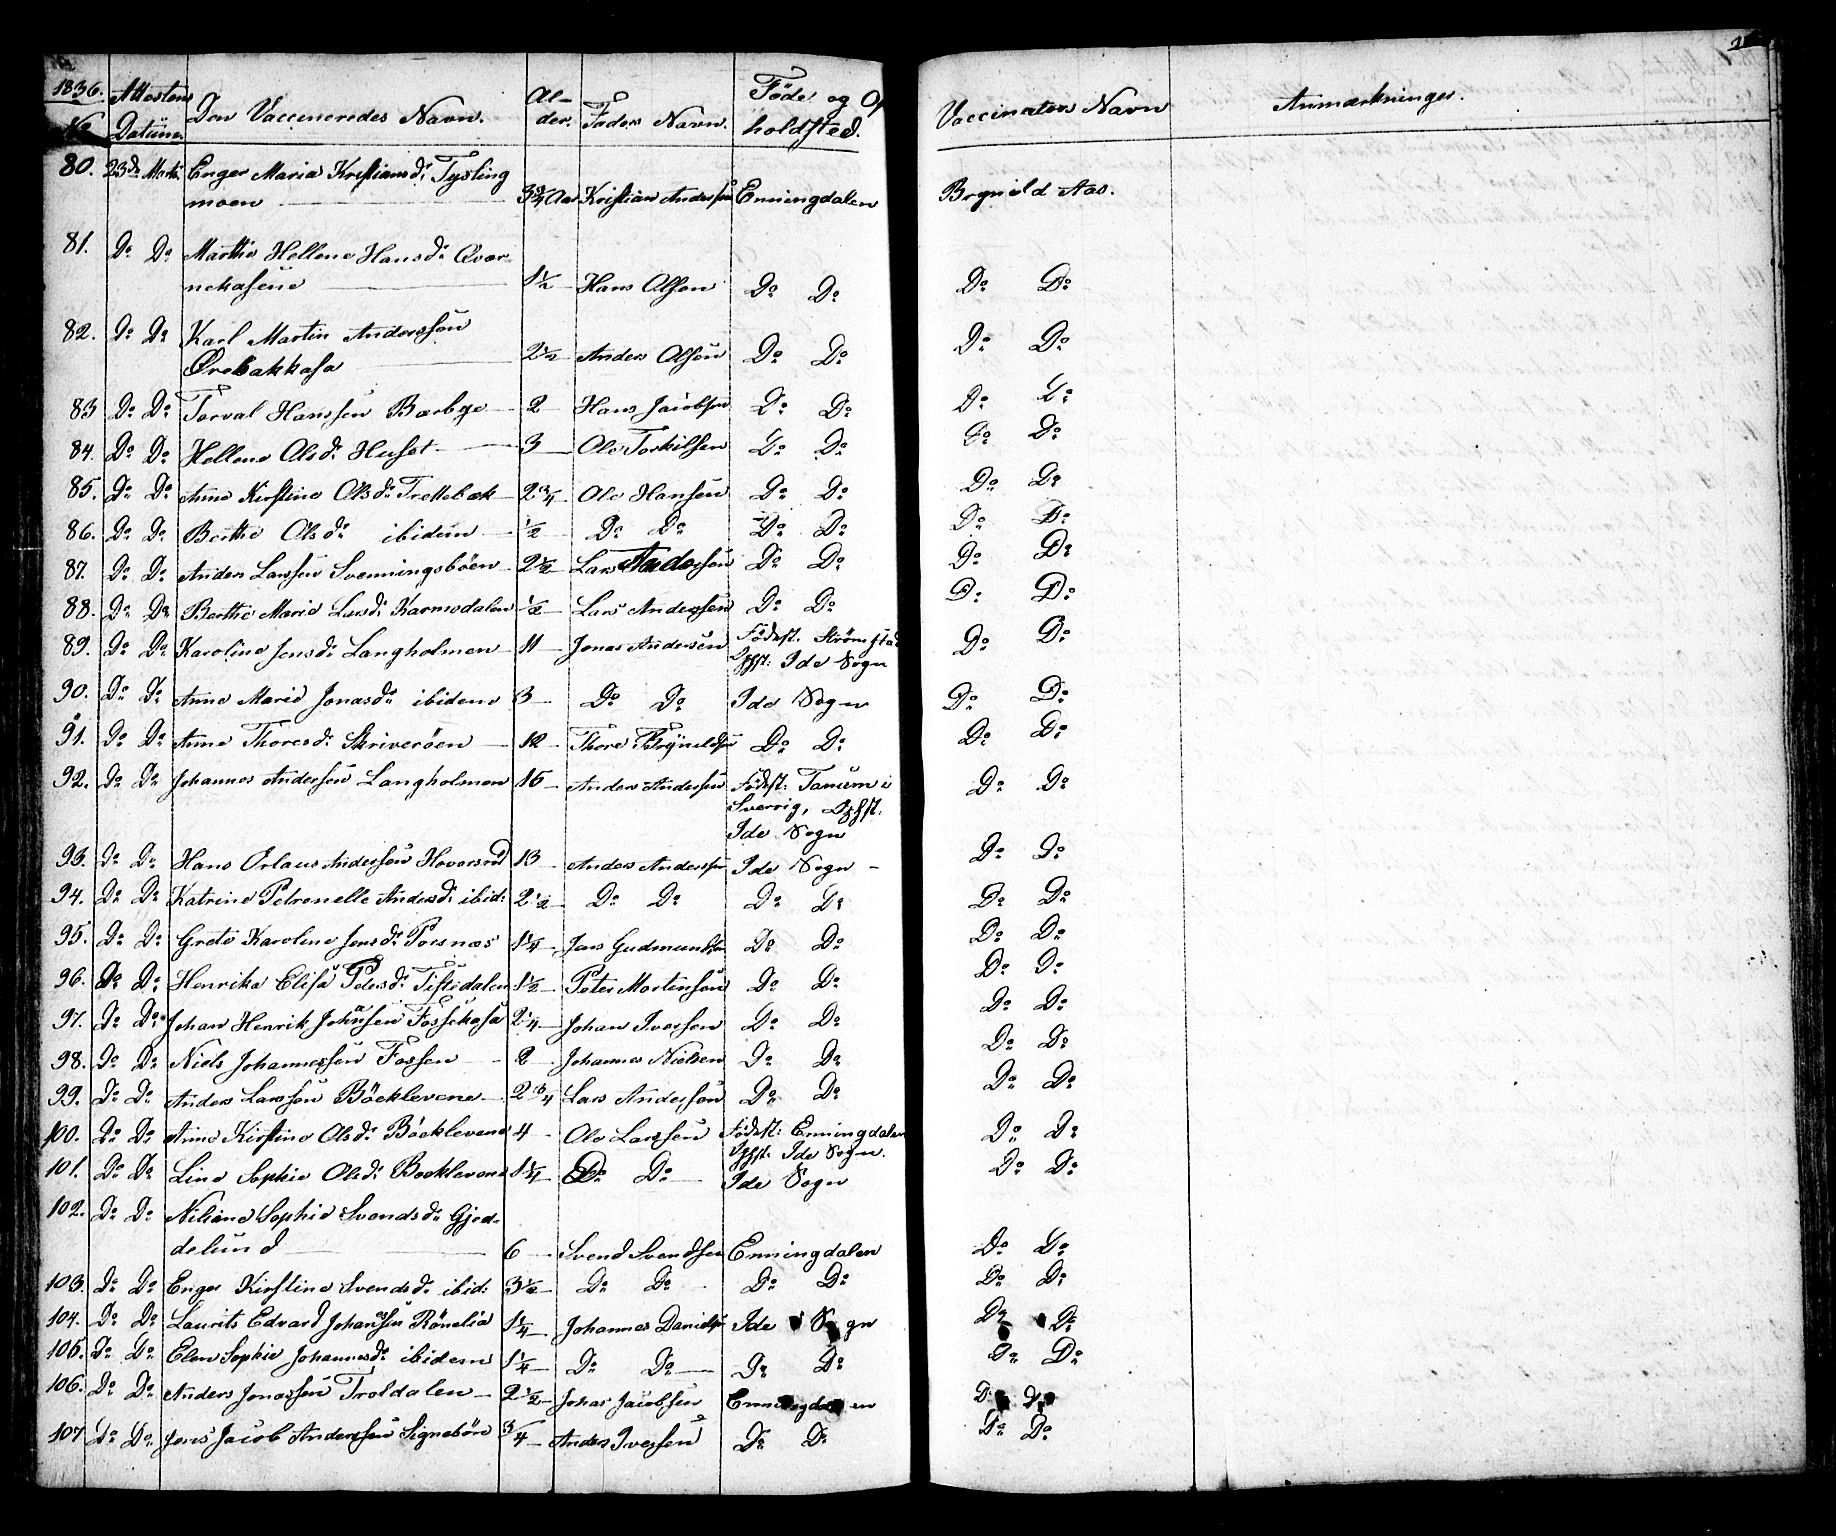 1836. Attestens Den Vaccineredes Navn. Al- Faders Navn. Føde og Op
No Datum der. holdsted. Vaccinators Navn Anmærkninger.
80. 23de Marti Enger Maria Kristiansdr Tysling
moen 3 3/4 Aar Kristian Anderssen Enningdalen Brynild Aas.
81. Do Do Marthe Hellene Hansdr Qvær-
nekasene 1 1/2 Hans Olssen Do Do Do Do
82. Do Do Karl Martin Anderssøn
Ørebakkasa 2 1/2 Anders Olsen Do Do Do Do
83 Do Do Torval Hanssen Bærbye 2 Hans Jacobsen Do Do Do Do
84. Do Do Hellene Olsdr Huset 3 Ole Torkilsen Do Do Do Do
85. Do Do Anne Kirstine Olsdr Trettebæk 2 3/4 Ole Hansen Do Do Do Do
86. Do Do Berthe Olsdr ibidum 1/2 Do Do Do Do Do Do
87. Do Do Anders Larssen Svenningsbøen 2 1/2 Lars Anderssøn Do Do Do Do
88. Do Do Berthe Marie Larsdr Karnesdalen 1/2 Lars Anderssen Do Do Do Do
89. Do Do Karoline Jonsdr Langholmen 11 Jonas Andersen Fødest. Strømstad
Opst: Ide Sogn Do Do
90. Do Do Anne Marie Jonasdr ibidem 3 Do Do Ide Sogn Do Do
91. Do Do Anne Thoresdr Skriverøen 12 Thore Brynildsen Do Do Do Do
92. Do Do Johannes Anderssøn Langholmen 15 Anders Anderssen Fødest: Tanum i
Sverrig, Ophst:
Ide Sogn Do Do
93. Do Do Hans Orlaus Anderssøn Hovorsrød 13 Anders Anderssen Ide Sogn Do Do
94. Do Do Katrine Petronelle Andersdr ibid: 2 1/2 Do Do Do Do Do Do
95. Do Do Grete Karoline Jensdr Torsnæs 1 1/4 Jens Gudmundsen Do Do Do Do
96. Do Do Henrika Elisa Petersdr Tistedalen 1 1/2 Peter Mortensøn Do Do Do Do
97. Do Do Johan Henrik Johnsen Fossekasa 2 1/4 Johan Iverssen Do Do Do Do
98. Do Do Niels Johannessen Fossen 2 Johannes Nielsen Do Do Do Do
99. Do Do Anders Larssøn Böeklevene 2 3/4 Lars Anderssøn Do Do Do Do
100. Do Do Anne Kirstine Olsdr Böeklevene 4 Ole Larssen Fødest: Enningdalen
Opst: Ide Sogn. Do Do
101. Do Do Line Sophie Olsdr Boeklevene 1 1/4 Do Do Ide Sogn Do Do
102. Do Do Niliane Sophie Svendsdr Gjed-
delund 6 Svend Svendsen Enningdalen Do Do
103. Do Do Enger Kirstine Svendsdr ibid: 3 1/2 Do Do Do Do Do Do
104. Do Do Laurits Edvard Johanssen Rönelid 1 1/4 Johannes Danielsen Ide Sogn Do Do
105. Do Do Elen Sophie Johannesdr ibidem 1 1/4 Do Do Do Do Do Do
106. Do Do Anders Jonassen Troldalen 2 1/2 Johas Jacobsen Enningdalen Do Do
107 Do Do Jens Jacob Anderssen Signebøn 3/4 Anders Iverssen Do Do Do Do